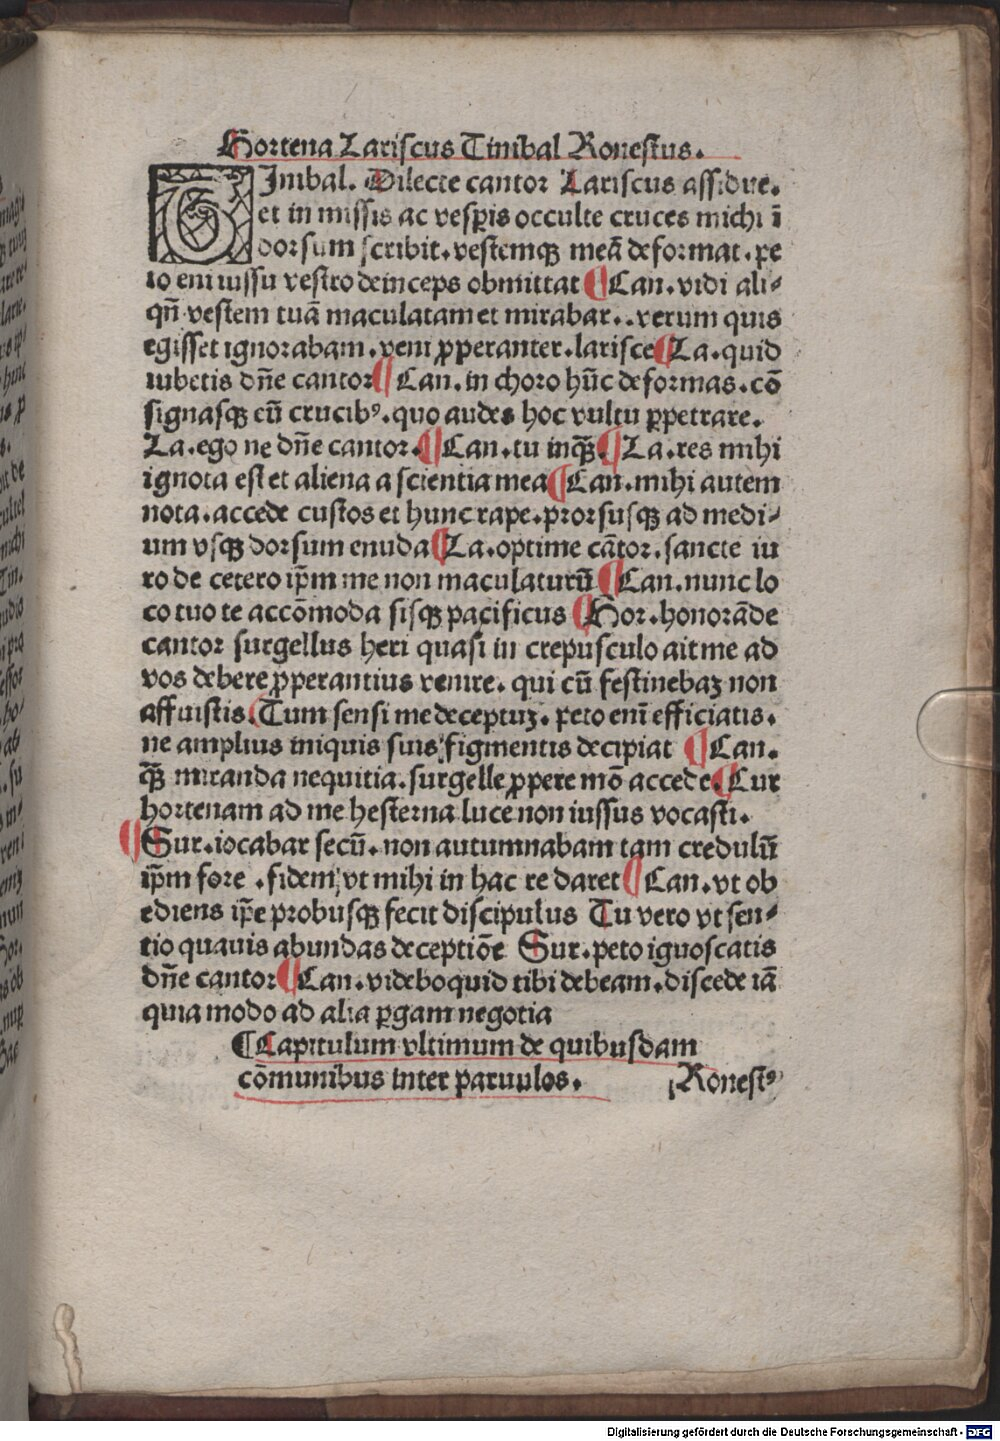 Hortena Lariscus Tinibal Ronestus.
TInibal. Dilecte cantor Lariscus assidue.
et in missis ac vesp̱is occulte cruces michi ī
dorsum scribit. vestemqꝫ meā deformat. pe
to eni iussu vestro deinceps obmittat ¶ Can. vidi ali⸗
qñ vestem tuā maculatam et mirabar.. verum quis
egisset ignorabam. veni ꝓperanter. larisce ¶ La. quid
iubetis dñe cantor ¶ Can. in choro hūc deformas. cō
signasqꝫ eū crucibꝰ. quo audes hoc vultu ꝑpetrare.
La. ego ne dñe cantor. ¶ Can. tu inqꝫ̄. ¶ La. res mihi
ignota est et aliena a scientia mea ¶ Can. mihi autem
nota. accede custos et hunc rape. prorsusqꝫ ad medi⸗
um vsqꝫ dorsum enuda ¶ La. optime cātor. sancte iu
ro de cetero ip̄m me non maculaturū ¶ Can. nunc lo
co tuo te accōmoda sisqꝫ pacificus ¶ Hor. honorāde
cantor surgellus heri quasi in crepusculo ait me ad
vos debere ꝓperantius venire. qui cū festinebaꝫ non
affuistis. Tum sensi me deceptuꝫ. peto enī efficiatis.
ne amplius iniquis suis figmentis decipiat ¶ Can.
qꝫ̄ miranda nequitia. surgelle ꝓpere mō accede. ¶ Cur
hortenam ad me hesterna luce non iussus vocasti.
¶ Sur. iocabar secū. non autumnabam tam credulū
ip̄m fore . fidem vt mihi in hac re daret ¶ Can. vt ob
ediens ip̄e probusqꝫ fecit discipulus Tu vero vt sen⸗
tio quauis abundas deceptiōe Sur. peto ignoscatis
dñe cantor ¶ Can. videbo quid tibi debeam. discede iā
quia modo ad alia ꝑgam negotia
¶ Capitulum vltimum de quibusdam
cōmunibus inter paruulos. Ronestꝰ
Digitalisierung gefördert durch die Deutsche Forschungsgemeinschaft - DFG